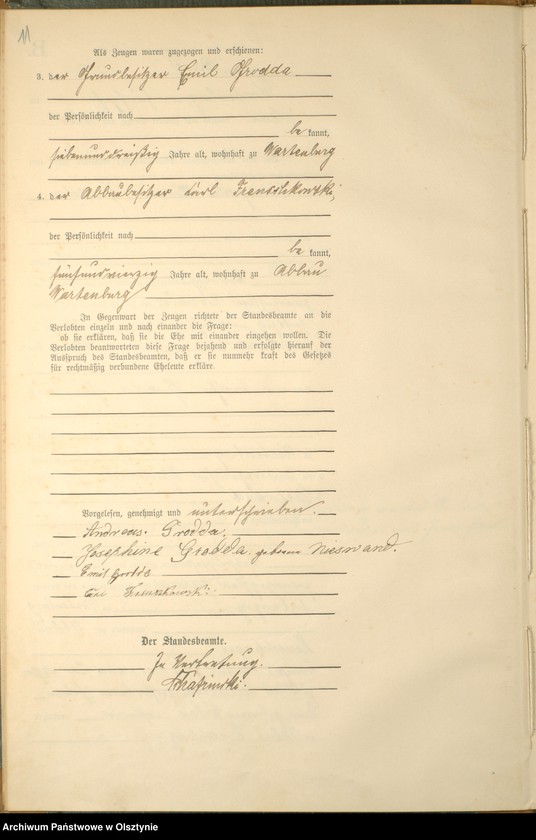 11
Als Zeugen waren zugezogen und erschienen:
3. der Grundbesitzer Emil Grodda
der Persönlichkeit nach
be kannt,
siebenunddreißig Jahre alt, wohnhaft zu Wartenburg
4. der Abbaubesitzer Karl
der Persönlichkeit nach
be kannt,
fünfundvierzig Jahre alt, wohnhaft zu Abbau
Wartenburg
In Gegenwart der Zeugen richtete der Standesbeamte an die
Verlobten einzeln und nach einander die Frage:
ob sie erklären, daß sie die Ehe mit einander eingehen wollen. Die
Verlobten beantworteten diese Frage bejahend und erfolgte hierauf der
Ausspruch des Standesbeamten, daß er sie nunmehr kraft des Gesetzes
für rechtmäßig verbundene Eheleute erkläre.
Vorgelesen, genehmigt und unterschrieben.
Andreas Grodda.
Josephine Grodda geborene Nieswand.
Emil Grodda
Der Standesbeamte.
In Vertretung.
Archiwum Państwowe w Olsztynie